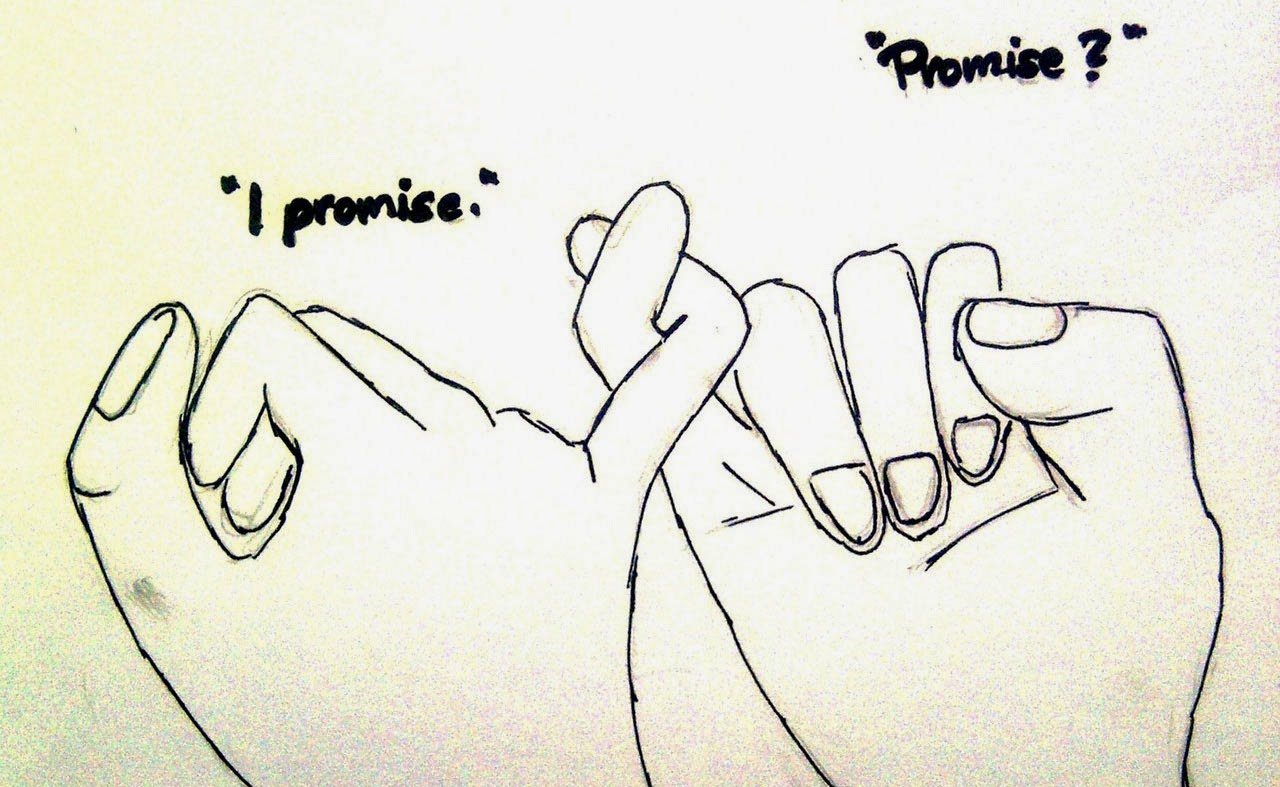 "Promise?"
"I promise."